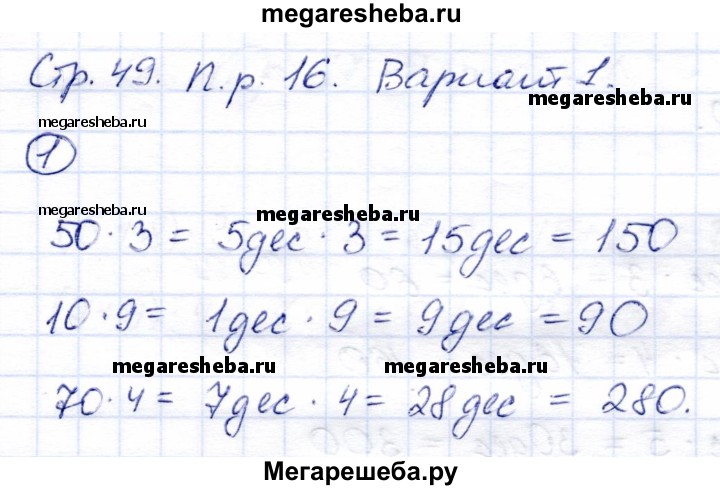 megaresheba.ru
Стр. 49. П.р. 16. Вариант 1.
megaresheba.ru
megaresheba.ru
1
megaresheba.ru
megaresheba.ru
50 · 3 = 5дес · 3 = 15дес = 150
10 · 9 = 1дес · 9 = 9дес = 90
megaresheba.ru megaresheba.ru
70 · 4 = 7дес · 4 = 28дес = 280.
Мегарешеба.ру